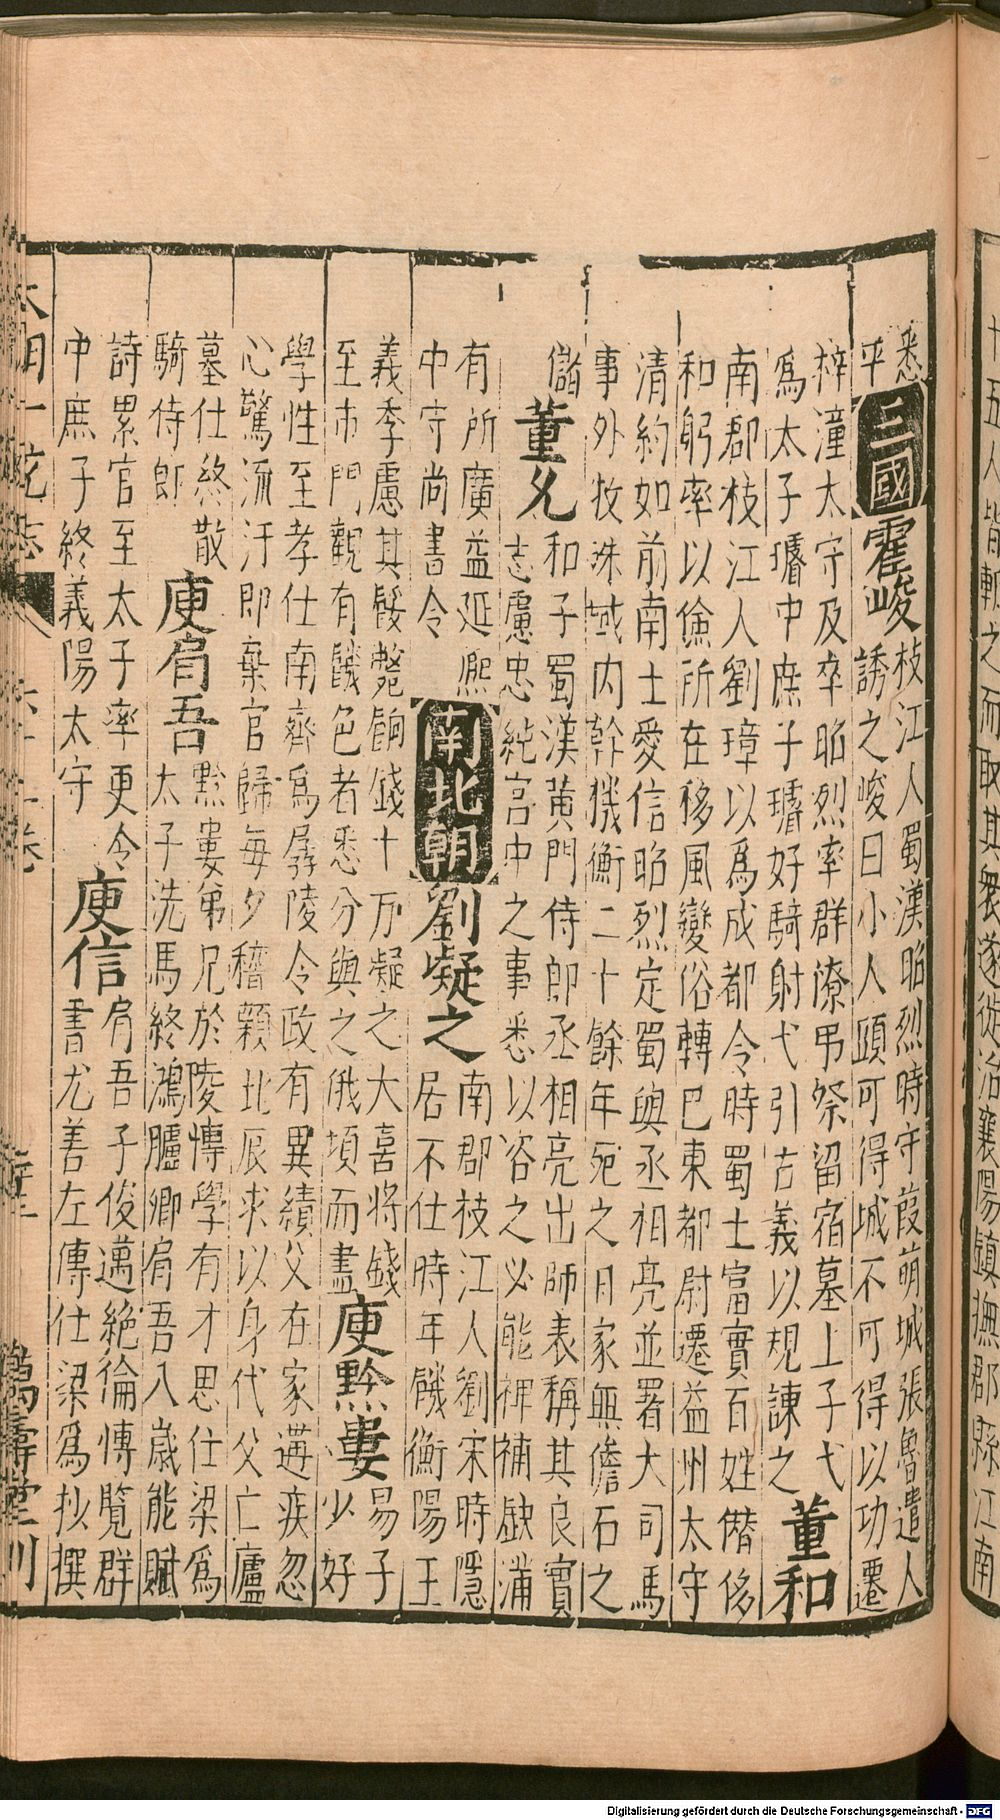 十五人皆斬之而取其衆遂徙治襄陽鎮撫郡縣江南
悉
平
三國
霍峻
枝江人蜀漢昭烈時守葭萌城張魯遣人
誘之峻曰小人頭可得城不可得以功遷
梓潼太守及卒昭烈率群僚弔祭留宿墓上子弋
爲太子璿中庶子璿好騎射弋引古義以規諫之
董和
南郡枝江人劉璋以爲成都令時蜀土富實百姓僭侈
和躬率以儉所在移風變俗轉巴東都尉遷益州太守
清約如前南土愛信昭烈定蜀與丞相亮並署大司馬
事外牧殊域内幹機衡二十餘年死之日家無儋石之
儲
董允
和子蜀漢黄門侍郎丞相亮出師表稱其良實
志慮忠純宮中之事悉以咨之必能裨補缺漏
有所廣益延熙
中守尚書令
南北朝
劉凝之
南郡枝江人劉宋時隱
居不仕時年饑衡陽王
義季慮其餒斃餉錢十万凝之大喜將錢
至市門觀有饑色者悉分與之俄頃而盡
庾黔婁
易子
少好
學性至孝仕南齊爲孱陵令政有異績父在家遘疾忽
心驚流汗即棄官歸每夕稽顙北辰求以身代父亡廬
墓仕終散
騎侍郎
庾肩吾
黔婁弟兄於陵慱學有才思仕梁爲
太子洗馬終鴻臚卿肩吾八歲能賦
詩累官至太子率更令
中庶子終義陽太守
庾信
肩吾子俊邁絶倫慱覽群
書尤善左傳仕梁爲抄撰
萬壽堂刊
Digitalisierung gefördert durch die Deutsche Forschungsgemeinschaft - DFG